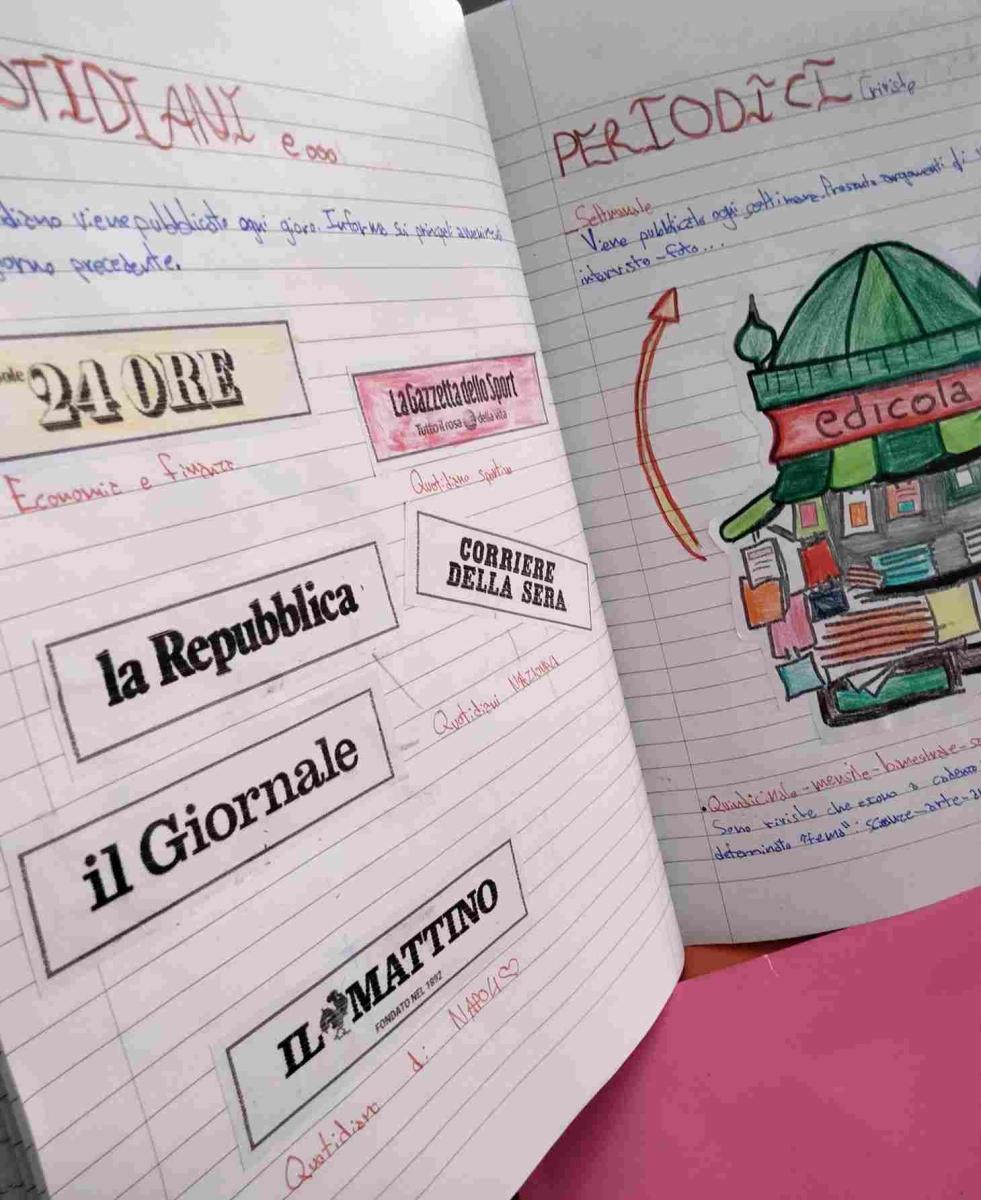 OTIDIANI e ooo
diano viene pubblicato ogni gioro. Informa sui
orno precedente.
ole 24 ORE
Economie e finanza
La Gazzetta dello Sport
Tutto il rosa della vita
Quotidiano sportivo
CORRIERE
DELLA SERA
la Repubblica
Quotidiani NAZIONALI
il Giornale
IL MATTINO
FONDATO NEL 1892
Quotidiano di NAPOLI
PERIODICI riviste
Settimanale
Viene pubblicato ogni settimana. Presenta argomenti di
interviste-foto...
edicola
Quindicinale-mensile-bimestrale-
Sono riviste che escono a cadenza
determinato "tema": scienze-arte-